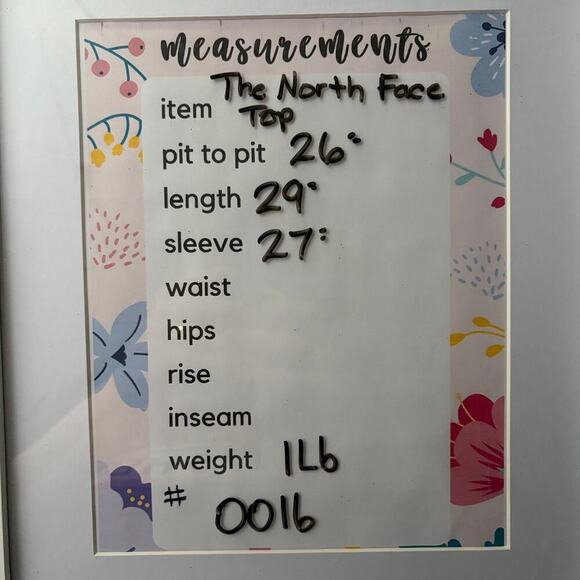 measurements
item The North Face
Top
pit to pit 26"
length 29"
sleeve 27"
waist
hips
rise
inseam
weight 1Lb
# 0016